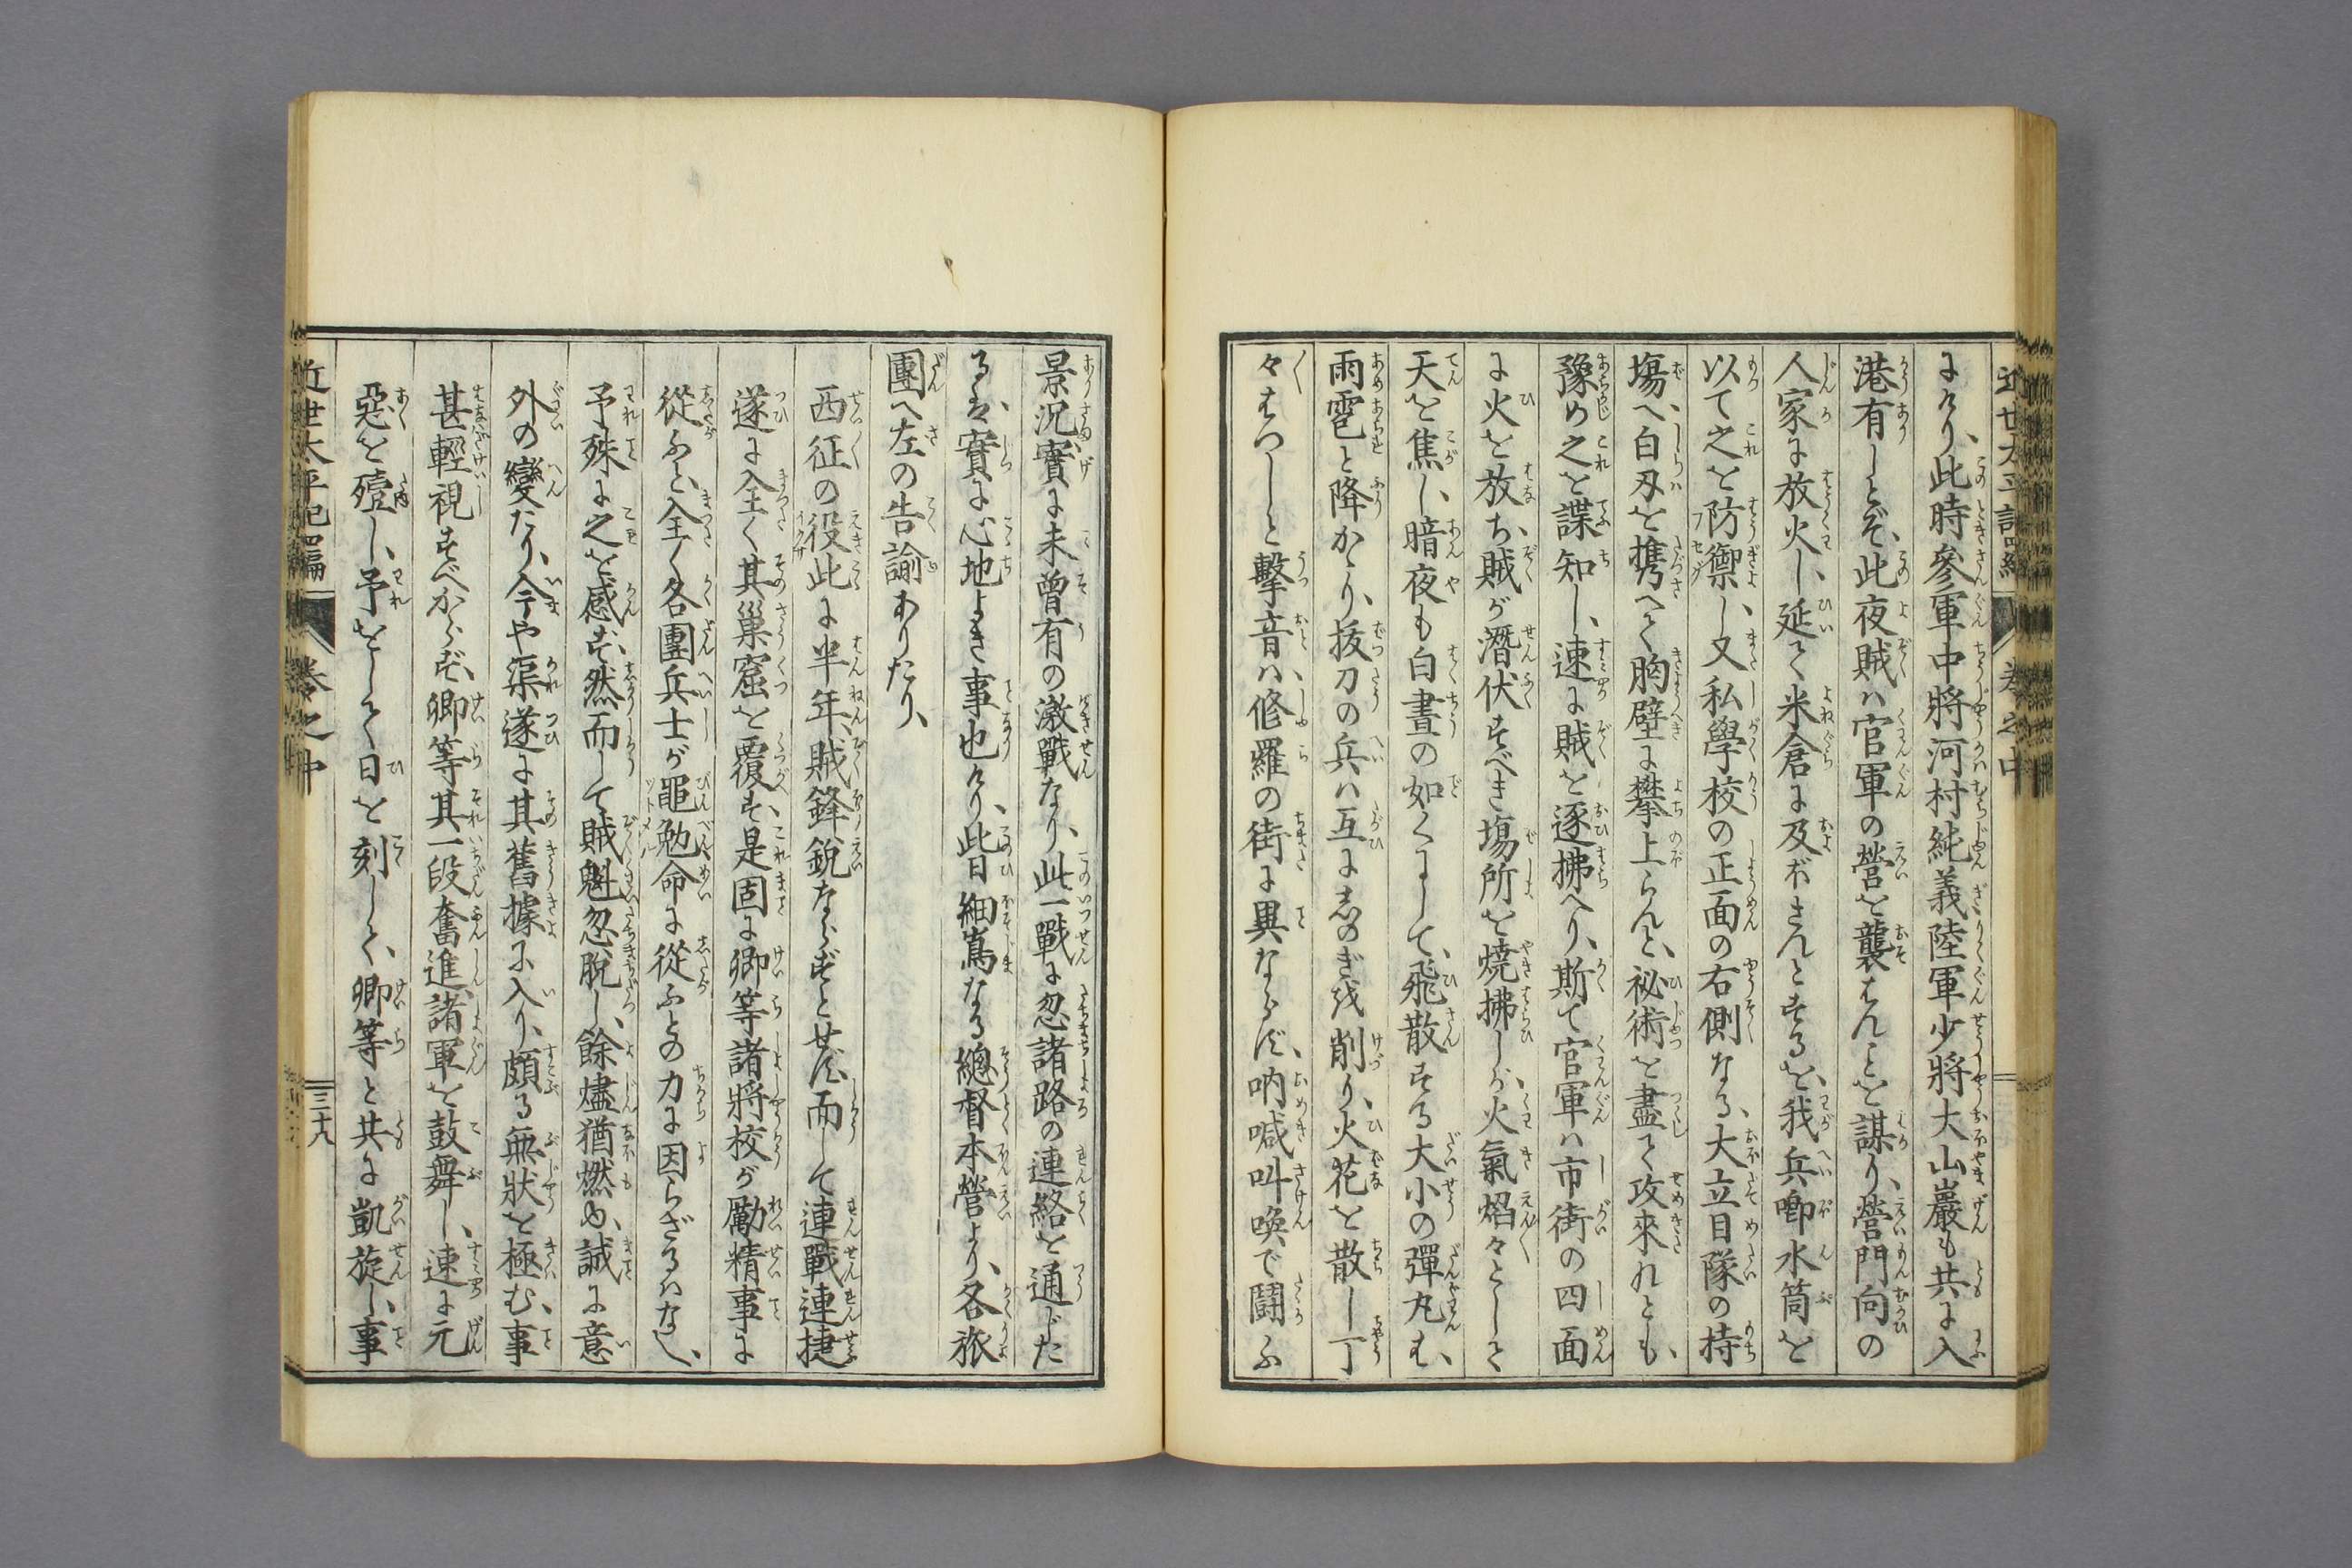 にけり、此時參軍中將河村純義陸軍少將大山巖も共に入
港有しとぞ、此夜賊ハ官軍の營を襲はんことを謀り、營門向の
人家に放火し、延て米倉に及ぼさんとするを、我兵喞水筒を
以て之を防禦し、又私學校の正面の右側なる、大立目隊の持
塲へ、白刄を携へて胸壁に攀上らんと、祕術を盡て攻來れとも、
豫め之を諜知し、速に賊を逐拂へり、斯て官軍ハ市街の四面
に火を放ち、賊が潛伏すべき塲所を燒拂しが、火氣焰々として
天を焦し、暗夜も白晝の如くにして、飛散する大小の彈丸は、
雨雹と降かゝり、拔刀の兵ハ互にしのぎを削り、火花を散し丁
々はつしと擊音ハ、修羅の街に異ならず、吶喊叫喚で鬪ふ
景況實に未曾有の激戰なり、此一戰に忽諸路の連絡を通じた
るハ、實に心地よき事也けり、此日細嶌なる總督本營より、各旅
團へ左の告諭ありたり、
西征の役此に半年、賊鋒銳ならずとせず、而して連戰連捷
遂に全く其巢窟を覆す、是固に卿等諸將校が勵精事に
從ふと、全く各團兵士が黽勉命に從ふとの力に因らざるハなし、
予殊に之を感ず、然而して賊魁忽脫し、餘燼猶燃ゆ、誠に意
外の變たり、今や渠遂に其舊據に入り、頗る無狀を極む、事
甚輕視すべからず、卿等其一段奮進、諸軍を鼓舞し、速に元
惡を殪し、予をして日を刻して、卿等と共に凱旋し、事
近世太平記二編 卷之中 三十九